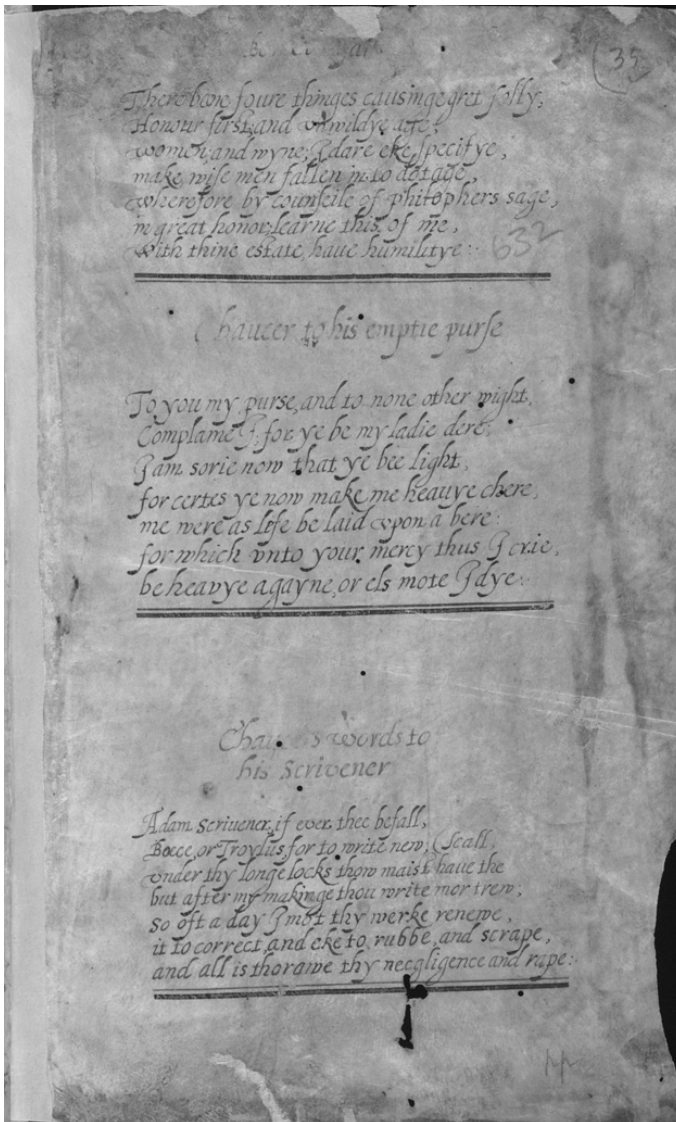 (35
There beene foure thinges causinge gret folly,
Honour first, and vnwildye age;
women, and wyne; I dare eke, specifye,
make wise men fallen in to dotage,
wherefore by counseile of philophers sage,
in great honor, learne this, of me,
with thine estate, haue humilitye:
632
Chaucer to his emptie purse
To you my purse, and to none other wight,
Complame I, for ye be my ladie dere;
I am sorie now that ye bee light,
for certes ye now make me heauye chere,
me were as life be laid vpon a bere:
for which vnto your mercy thus I crie,
be heavye agayne, or els mote I dye:
words to
his Scrivener
Adam Scriuener, if ever thee befall,
Boece, or Troylus, for to write new, (scall,
vnder thy longe locks thow maist haue the
but after my makinge thou write mor trew;
So oft a day I mot thy werke renewe,
it to correct, and eke to, rubbe, and scrape,
and all is thorawe thy necgligence and rape: